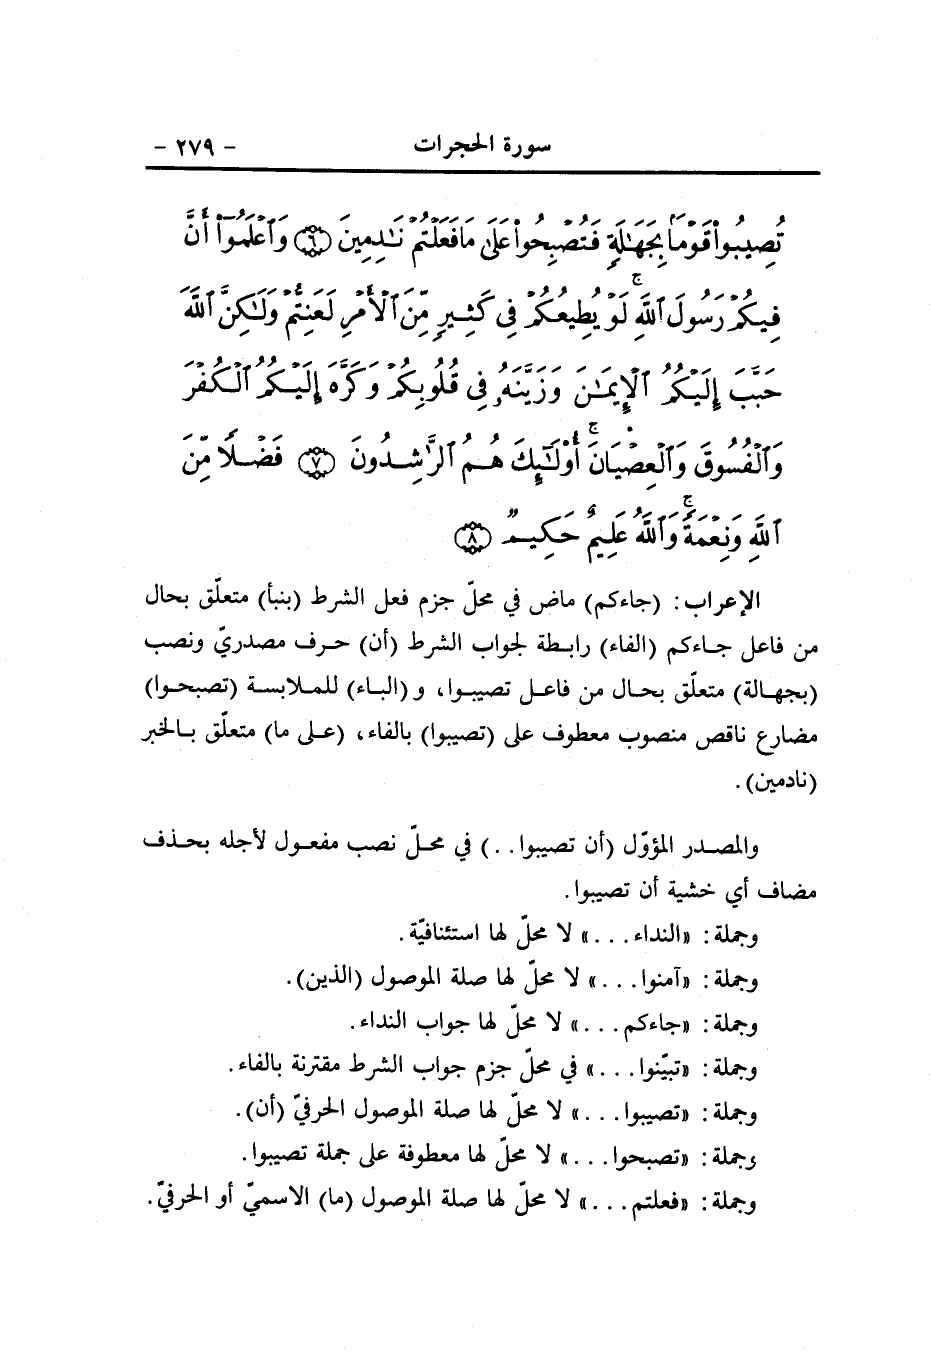 سورة الحجرات - ٢٧٩ -
تُصِيبُوا۟ قَوْمًۢا بِجَهَٰلَةٍ فَتُصْبِحُوا۟ عَلَىٰ مَا فَعَلْتُمْ نَٰدِمِينَ ﴿٦﴾ وَٱعْلَمُوٓا۟ أَنَّ
فِيكُمْ رَسُولَ ٱللَّهِ ۚ لَوْ يُطِيعُكُمْ فِى كَثِيرٍ مِّنَ ٱلْأَمْرِ لَعَنِتُّمْ وَلَٰكِنَّ ٱللَّهَ
حَبَّبَ إِلَيْكُمُ ٱلْإِيمَٰنَ وَزَيَّنَهُۥ فِى قُلُوبِكُمْ وَكَرَّهَ إِلَيْكُمُ ٱلْكُفْرَ
وَٱلْفُسُوقَ وَٱلْعِصْيَانَ ۚ أُو۟لَٰٓئِكَ هُمُ ٱلرَّٰشِدُونَ ﴿٧﴾ فَضْلًا مِّنَ
ٱللَّهِ وَنِعْمَةً ۚ وَٱللَّهُ عَلِيمٌ حَكِيمٌ ﴿٨﴾
الإعراب: (جاءكم) ماض في محلّ جزم فعل الشرط (بنبأ) متعلّق بحال
من فاعل جاءكم (الفاء) رابطة لجواب الشرط (أن) حرف مصدريّ ونصب
(بجهالة) متعلّق بحال من فاعل تصيبوا، و (الباء) للملابسة (تصبحوا)
مضارع ناقص منصوب معطوف على (تصيبوا) بالفاء، (على ما) متعلّق بالخبر
(نادمين).
والمصدر المؤوّل (أن تصيبوا..) في محلّ نصب مفعول لأجله بحذف
مضاف أي خشية أن تصيبوا.
وجملة: «النداء...» لا محلّ لها استئنافيّة.
وجملة: «آمنوا...» لا محلّ لها صلة الموصول (الذين).
وجملة: «جاءكم...» لا محلّ لها جواب النداء.
وجملة: «تبيّنوا...» في محلّ جزم جواب الشرط مقترنة بالفاء.
وجملة: «تصيبوا...» لا محلّ لها صلة الموصول الحرفيّ (أن).
وجملة: «تصبحوا...» لا محلّ لها معطوفة على جملة تصيبوا.
وجملة: «فعلتم...» لا محلّ لها صلة الموصول (ما) الاسميّ أو الحرفيّ.